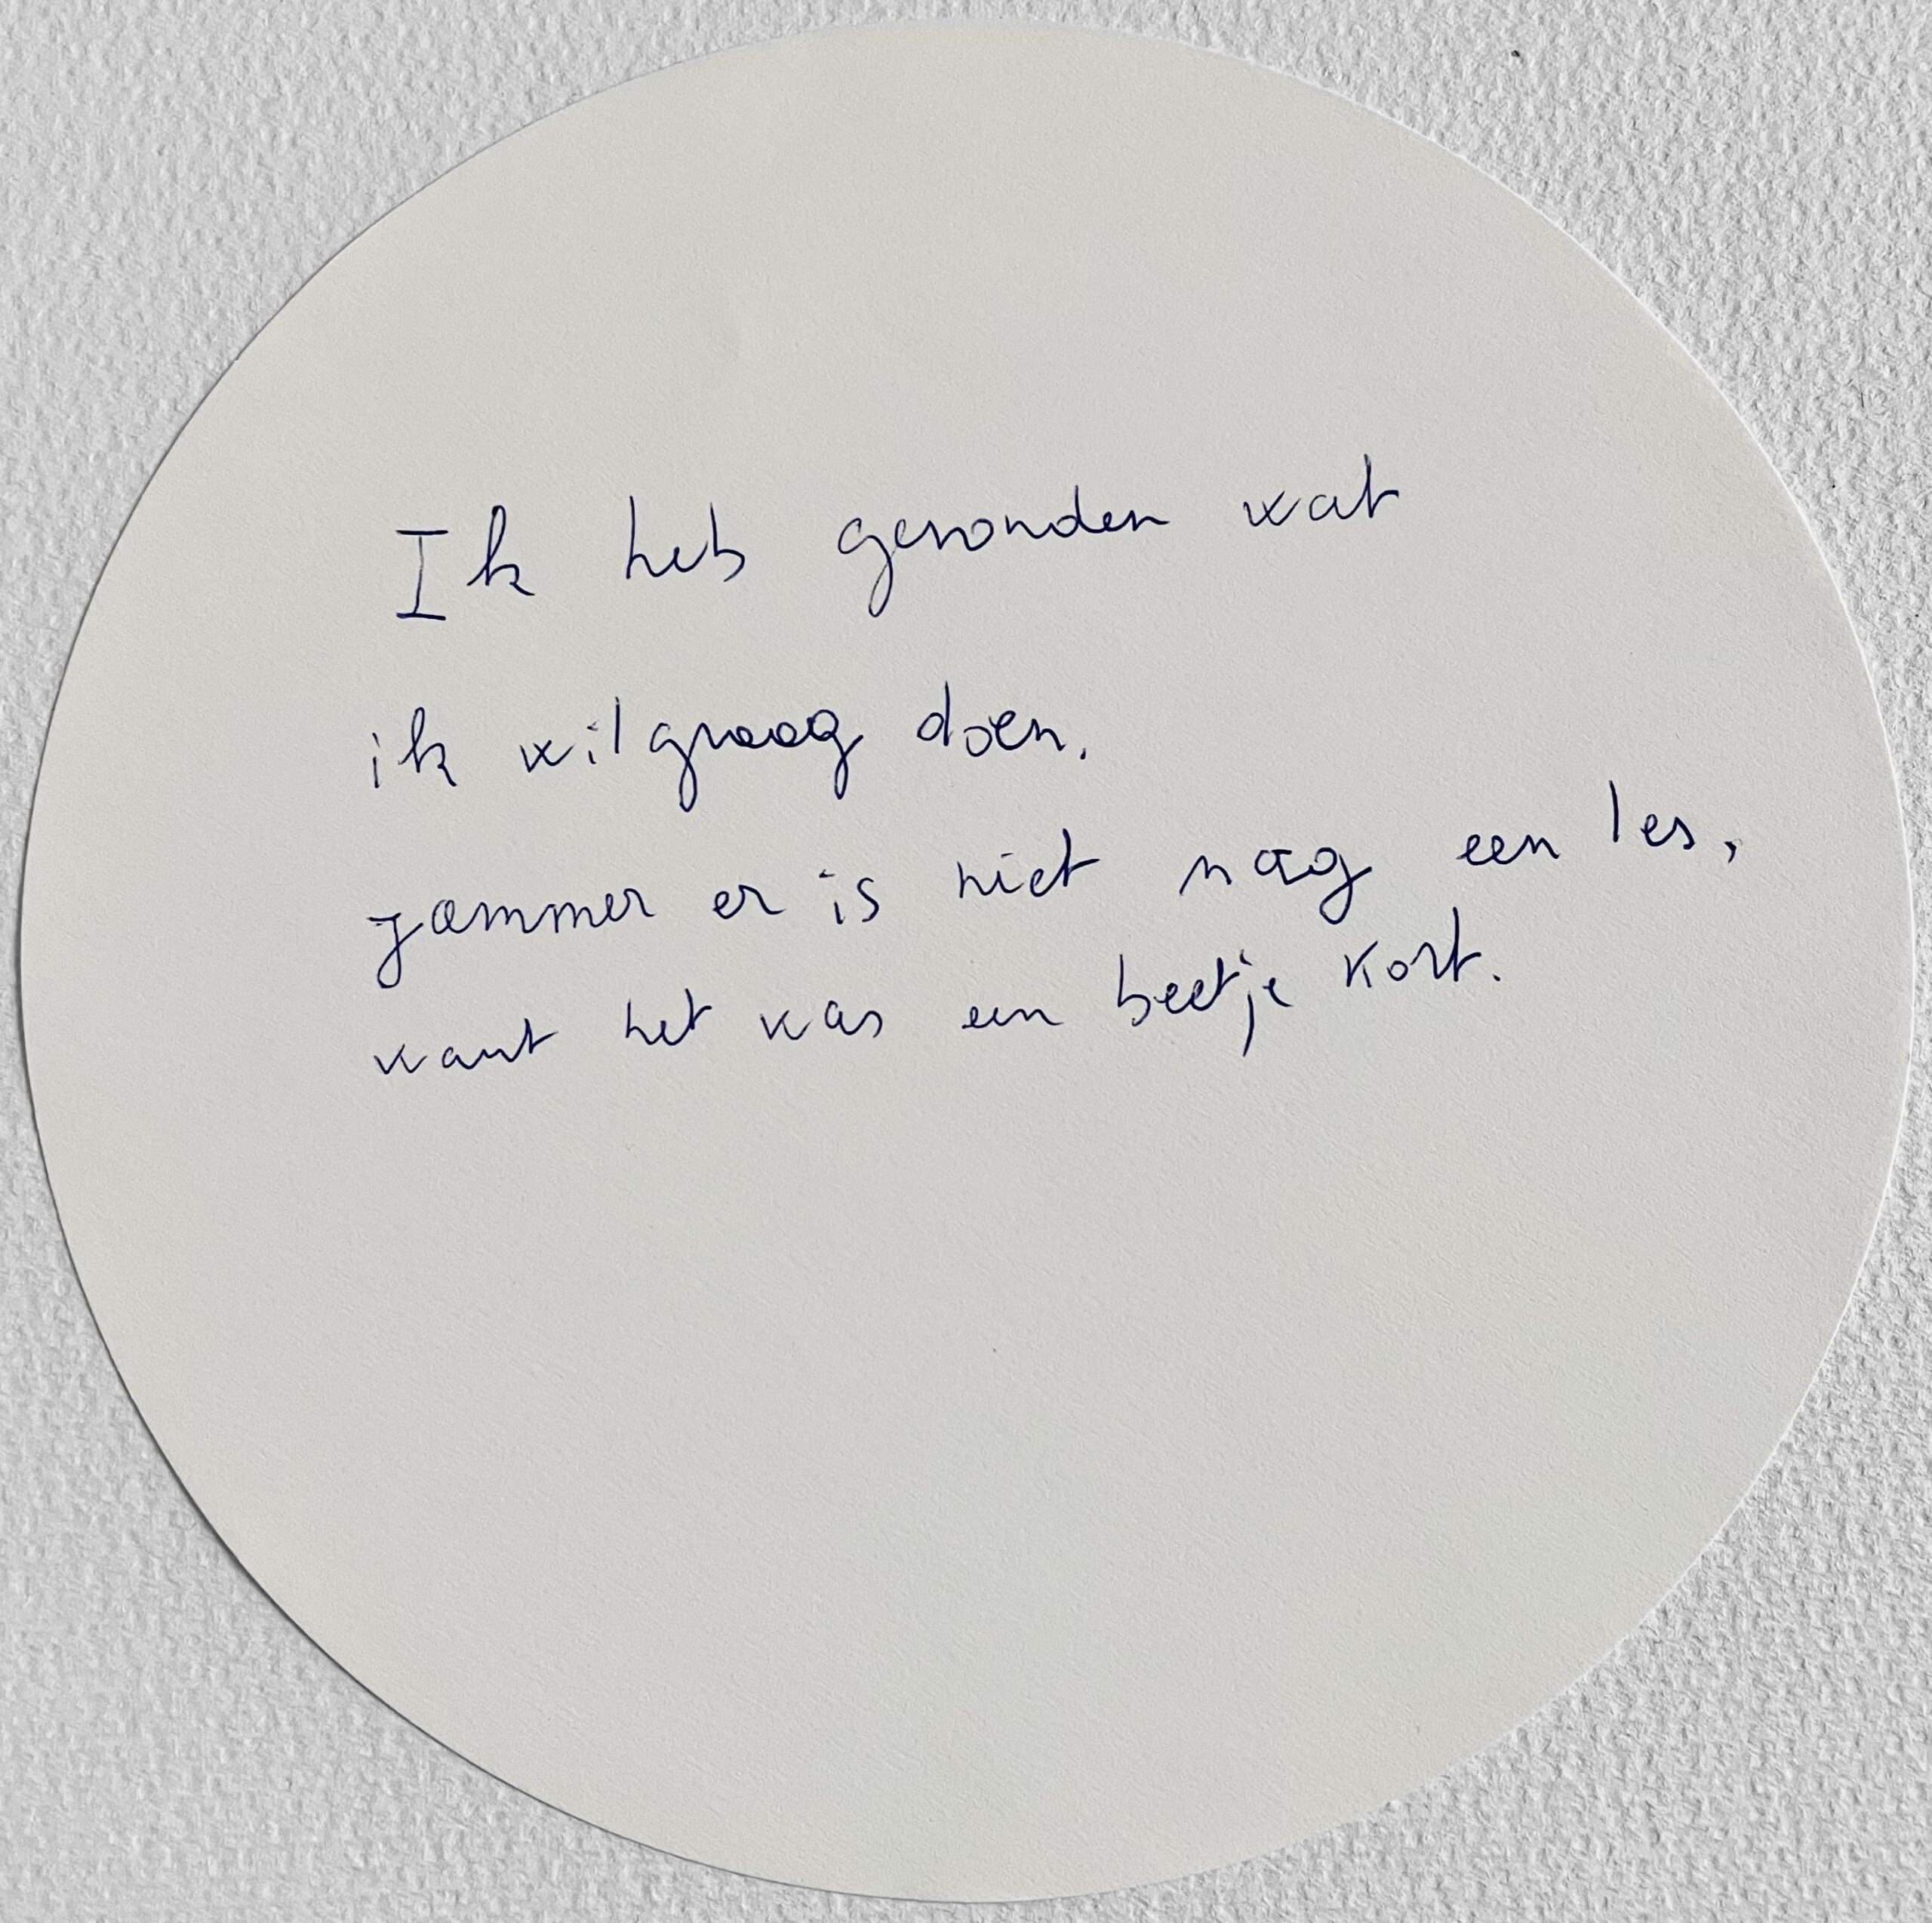 Ik heb gevonden wat
ik wil graag doen.
jammer er is niet nog een les,
want het was een beetje kort.